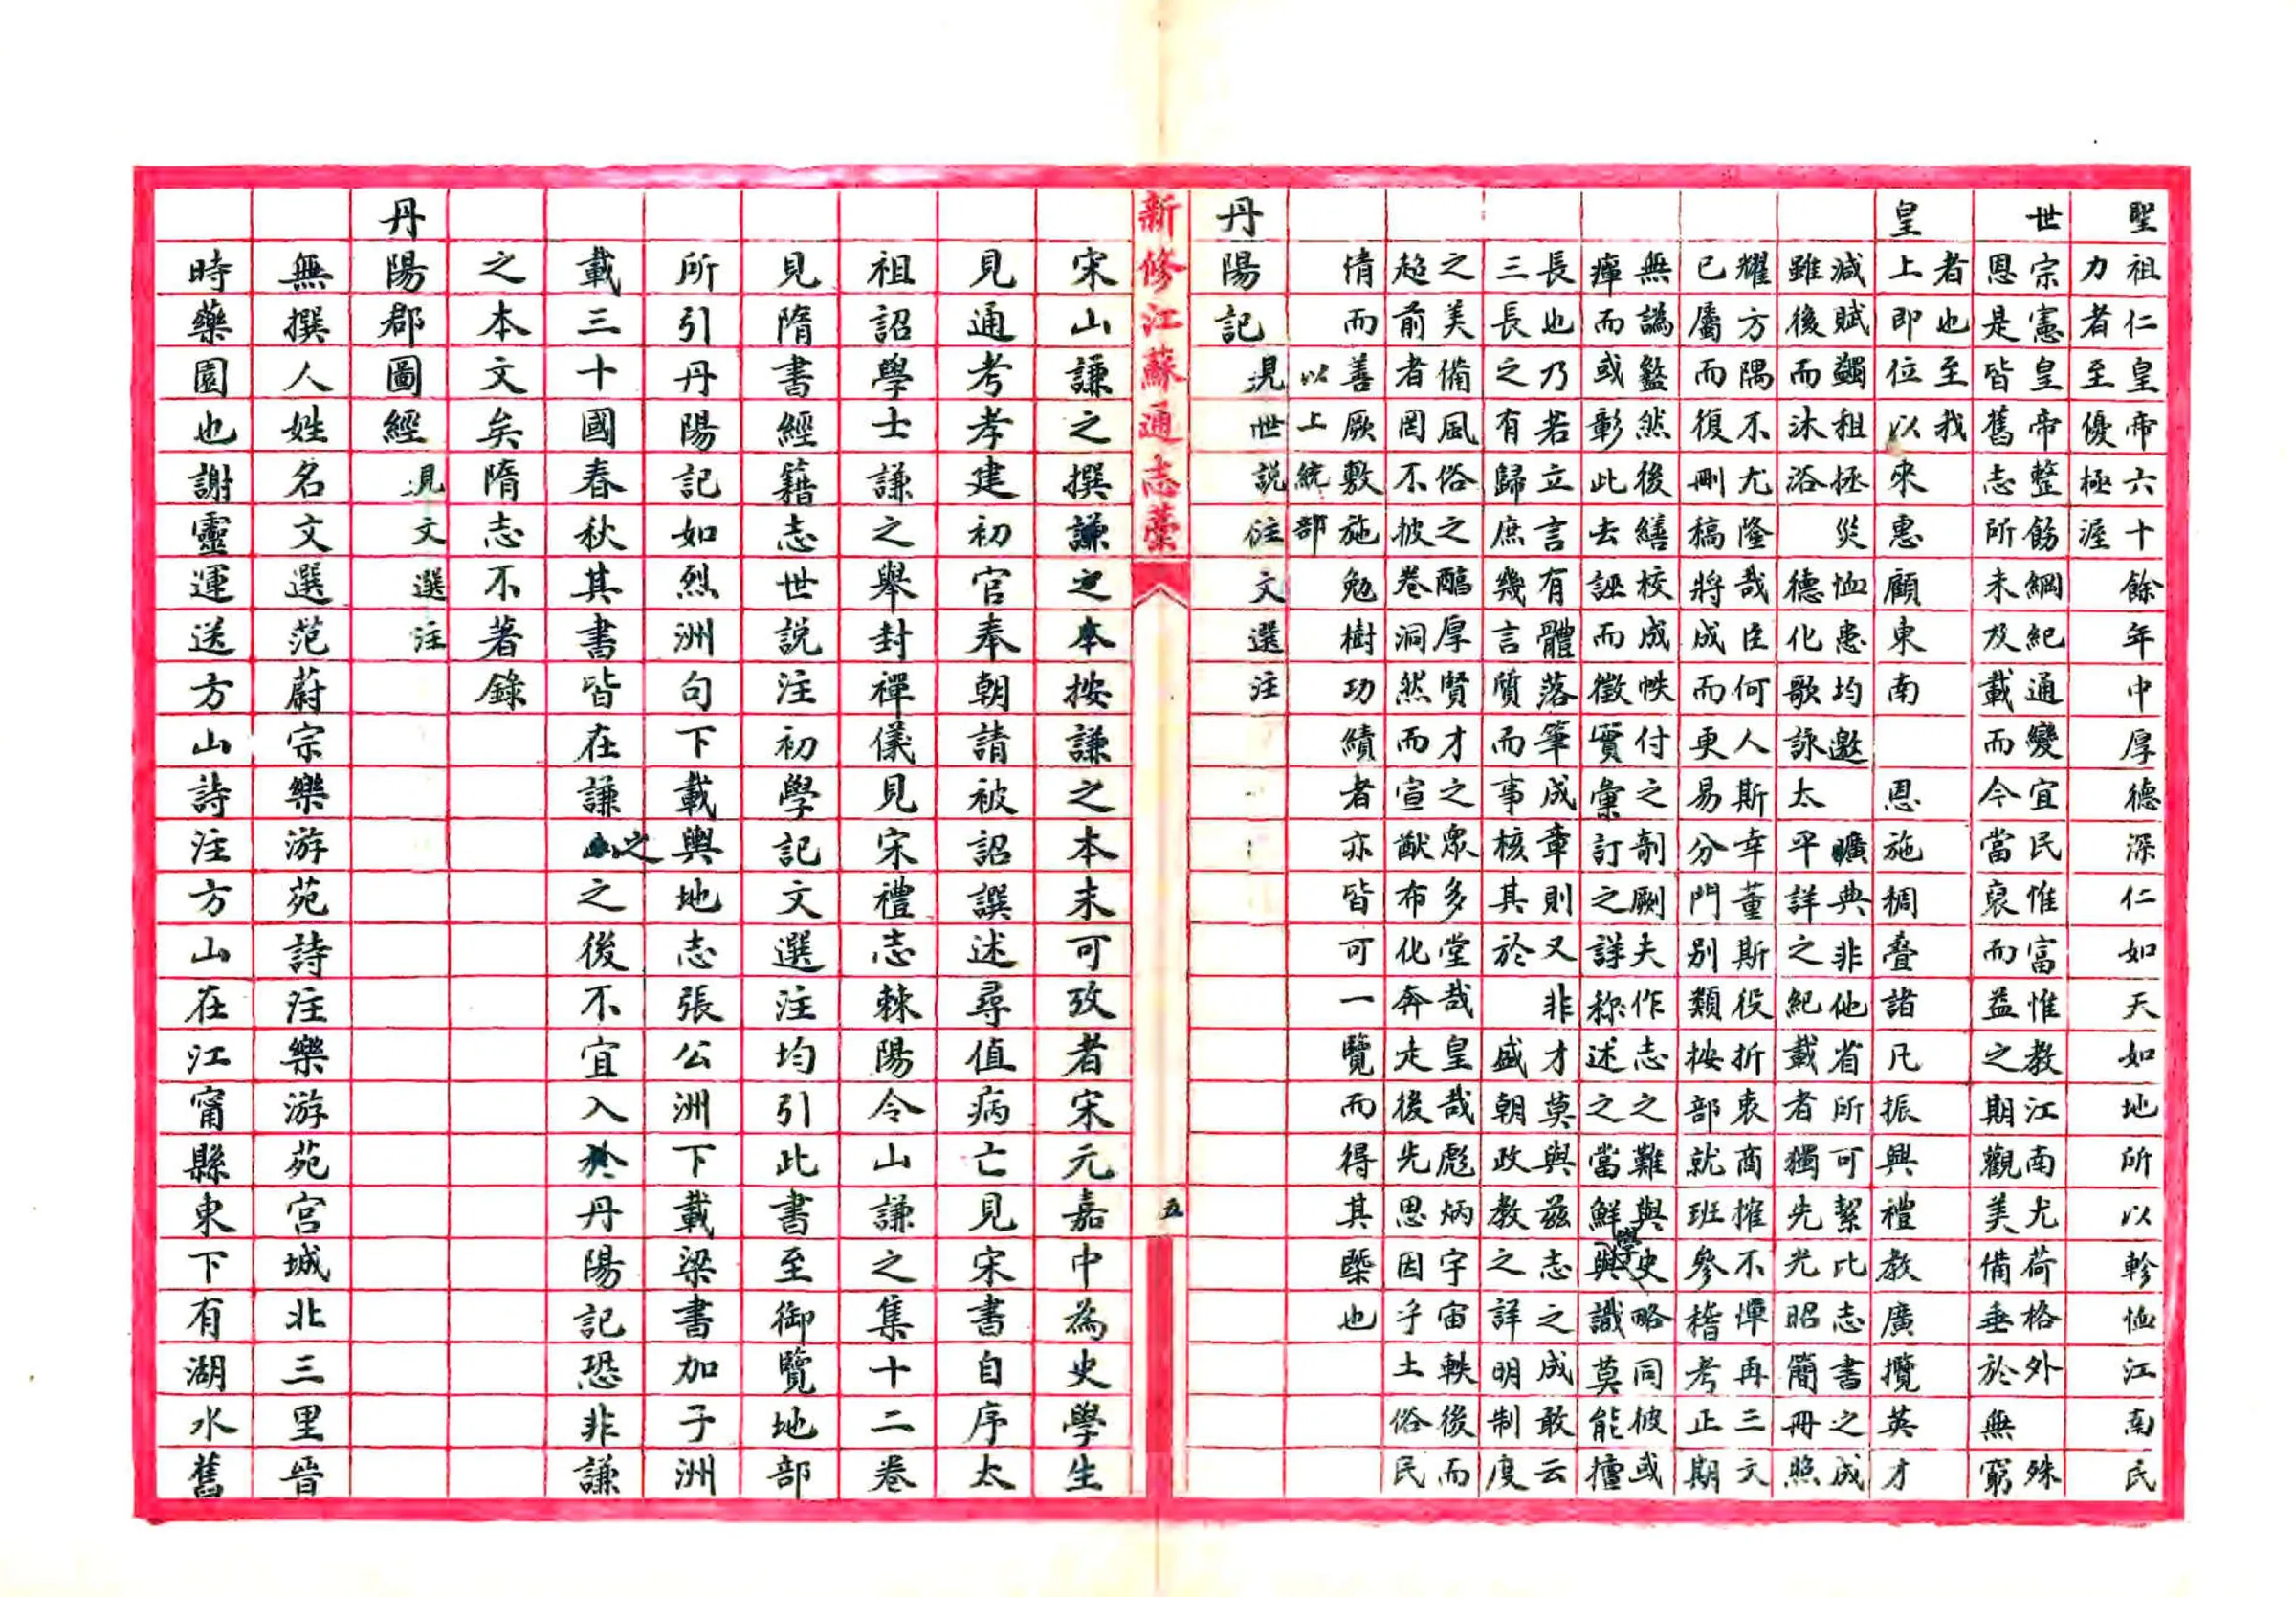 聖祖仁皇帝六十餘年中厚德深仁如天如地所以軫恤江南民
力者至優極渥
世宗憲皇帝整飭綱紀通變宜民惟富惟教江南尤荷格外殊
恩是皆舊志所未及載而今當裒而益之期觀美備垂於無窮
者也至我
皇上即位以來惠顧東南恩施稠疊諸凡振興禮教廣攬英才
減賦蠲租拯災恤患均邀曠典非他省所可絜比志書之成
雖後而沐浴德化歌詠太平詳之紀載者獨先光昭簡冊照
耀方隅不尤隆哉臣何人斯幸董斯役折衷商搉不憚再三文
已屬而復刪稿將成而更易分門別類按部就班參稽考正期
無譌盭然後繕校成帙付之剞劂夫作志之難與史略同彼或
癉而或彰此去誣而徵實彙訂之詳稱述之當鮮學與識莫能擅
長也乃若立言有體落筆成章則又非才莫與茲志之成敢云
三長之有歸庶幾言質而事核其於盛朝政教之詳明制度
之美備風俗之醕厚賢才之眾多堂哉皇哉彪炳宇宙軼後而
超前者罔不披卷洞然而宣猷布化奔走後先思因乎土俗民
情而善厥敷施勉樹功績者亦皆可一覽而得其槩也
以上統部
丹陽記 見世說注文選注
新修江蘇通志藁 五
宋山謙之撰謙之本按謙之本末可攷者宋元嘉中為史學生
見通考孝建初官奉朝請被詔譔述尋值病亡見宋書自序太
祖詔學士謙之舉封禪儀見宋禮志棘陽令山謙之集十二卷
見隋書經籍志世說注初學記文選注均引此書至御覽地部
所引丹陽記如烈洲句下載輿地志張公洲下載梁書加子洲
載三十國春秋其書皆在謙之之後不宜入於丹陽記恐非謙
之本文矣隋志不著錄
丹陽郡圖經 見文選注
無撰人姓名文選范蔚宗樂游苑詩注樂游苑宮城北三里晉
時藥園也謝靈運送方山詩注方山在江甯縣東下有湖水舊